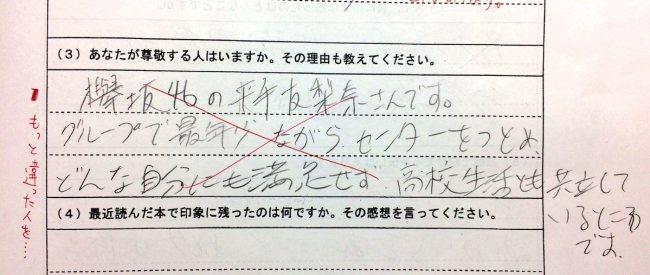 (3) あなたが尊敬する人はいますか。その理由も教えてください。
欅坂46の平手友梨奈さんです。
グループで最年少ながら、センターをつとめ、
どんな自分にも満足せず、高校生活とも共立して
いるところ
です。
もっと違った人を…
(4) 最近読んだ本で印象に残ったのは何ですか。その感想を言ってください。